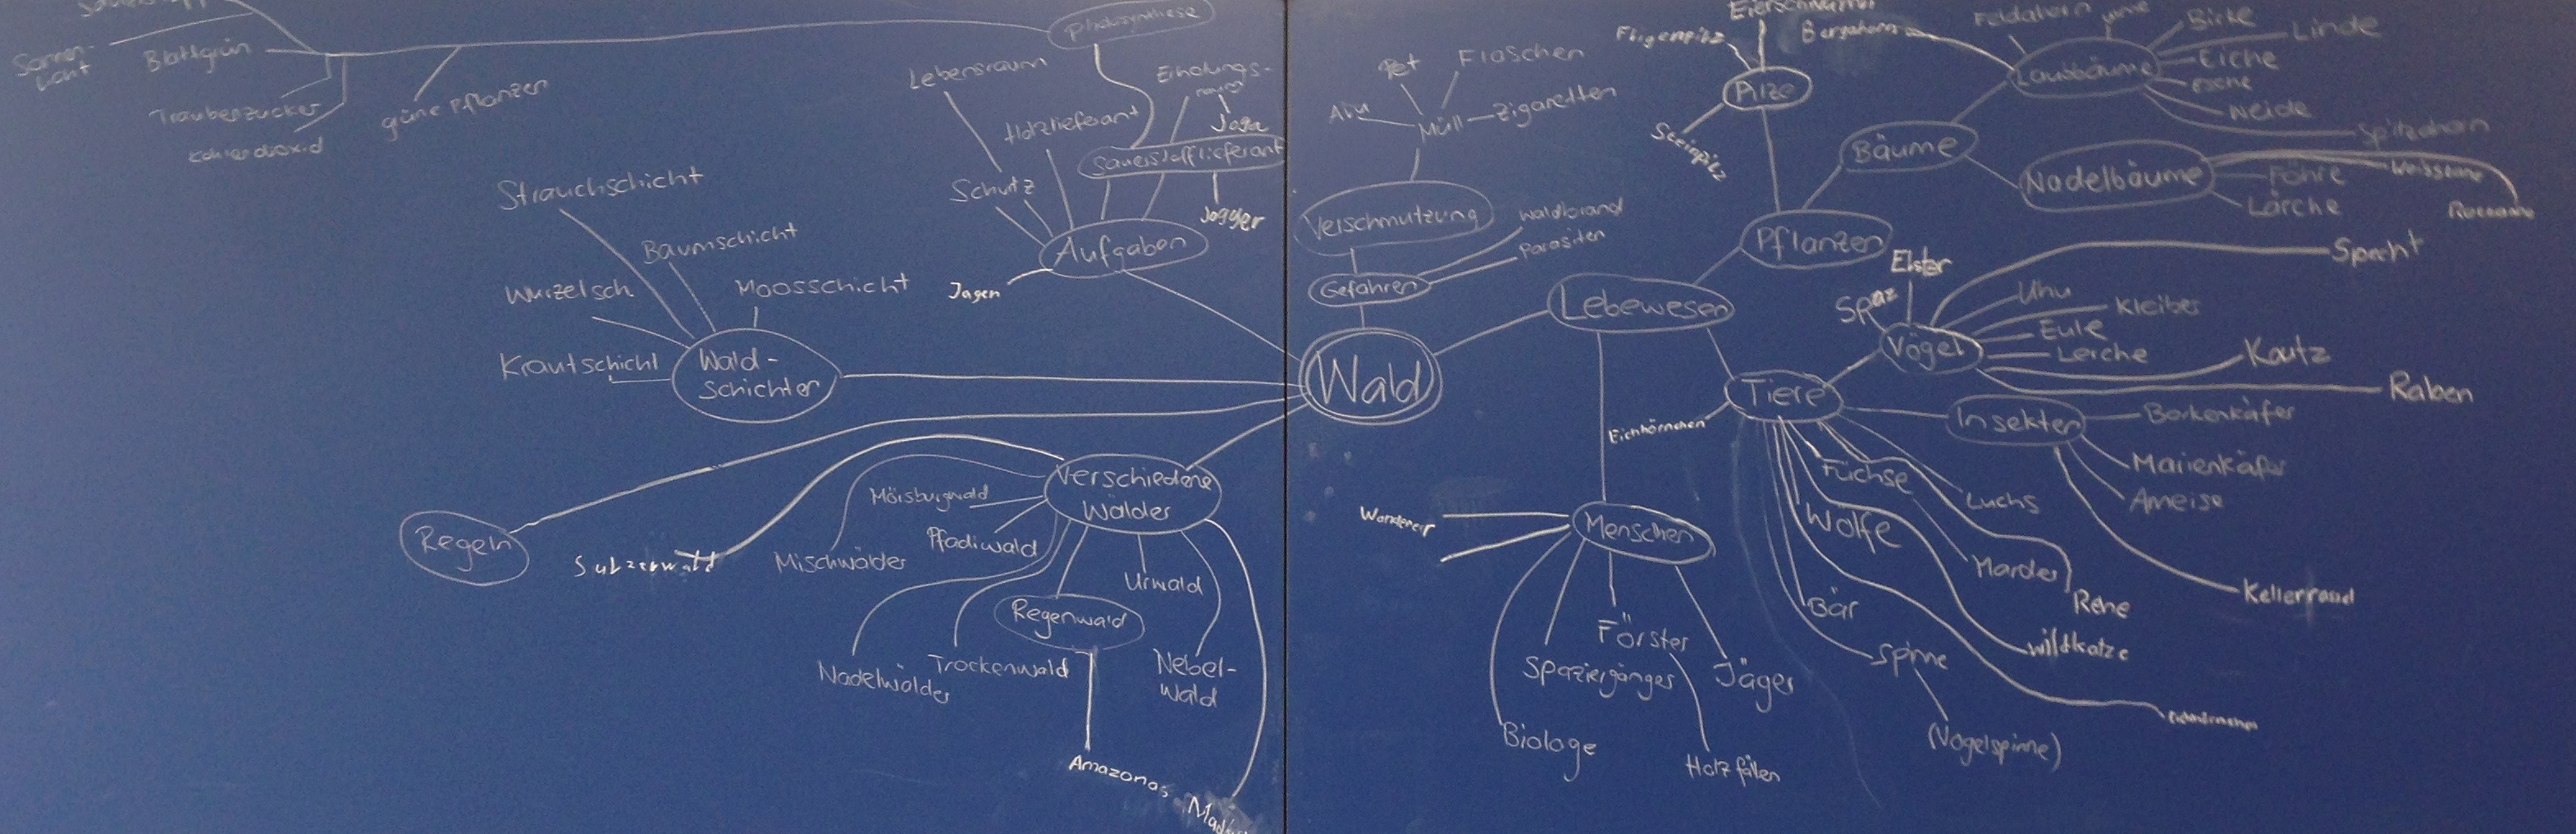 Blattgrün
Traubenzucker
güne Pflanzen
Photosynthese
Lebensraum
Holzlieferant
Erholungs-
raum
Joga
Sauerstofflieferant
Schutz
Jogger
Aufgaben
Jagen
Strauchschicht
Baumschicht
Wurzelsch
Moosschicht
Krautschicht
Wald-
Schichten
Regeln
Sulzerwald
Verschiedene
Wälder
Mörsburgwald
Pfadiwald
Mischwälder
Urwald
Regenwald
Nadelwälder
Trockenwald
Nebel-
wald
Amazonas
Wald
Pet
Flaschen
Alu
Müll
Zigaretten
Verschmutzung
Waldbrand
Parasiten
Gefahren
Lebewesen
Fligenpilz
Pilze
Steinpilz
Bergahorn
Feldahorn
Laubbäume
Birke
Linde
Eiche
Esche
Weide
Spitzahorn
Bäume
Nadelbäume
Föhre
Weisstanne
Lärche
Pflanzen
Elster
Spaz
Vögel
Specht
Uhu
Kleiber
Eule
Lerche
Kautz
Raben
Tiere
Insekten
Borkenkäfer
Marienkäfer
Ameise
Eichhörnchen
Füchse
Luchs
Wölfe
Marder
Rehe
Bär
Wildkatze
Spinne
(Vogelspinne)
Menschen
Wanderer
Förster
Spaziergänger
Jäger
Biologe
Holzfällen